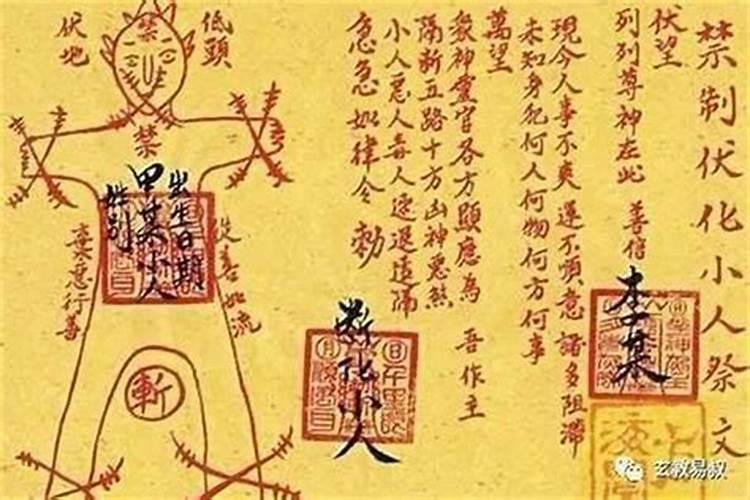 禁制伏化小人祭文
伏望
列列尊神在此 善信
李某
現今人事不爽運不順意諸多阻滯
未知身犯何人何物何方何事
萬望
眾神靈官各方顯應為 吾作主
隔斬五路十方凶神惡煞
小人惡人毒人速退遠隔
急急如律令 勅
斬化小人
低頭
伏地
禁
禁
出生日期
甲某小人
性别
從善如流
棄惡行善
斬
玄教易叔